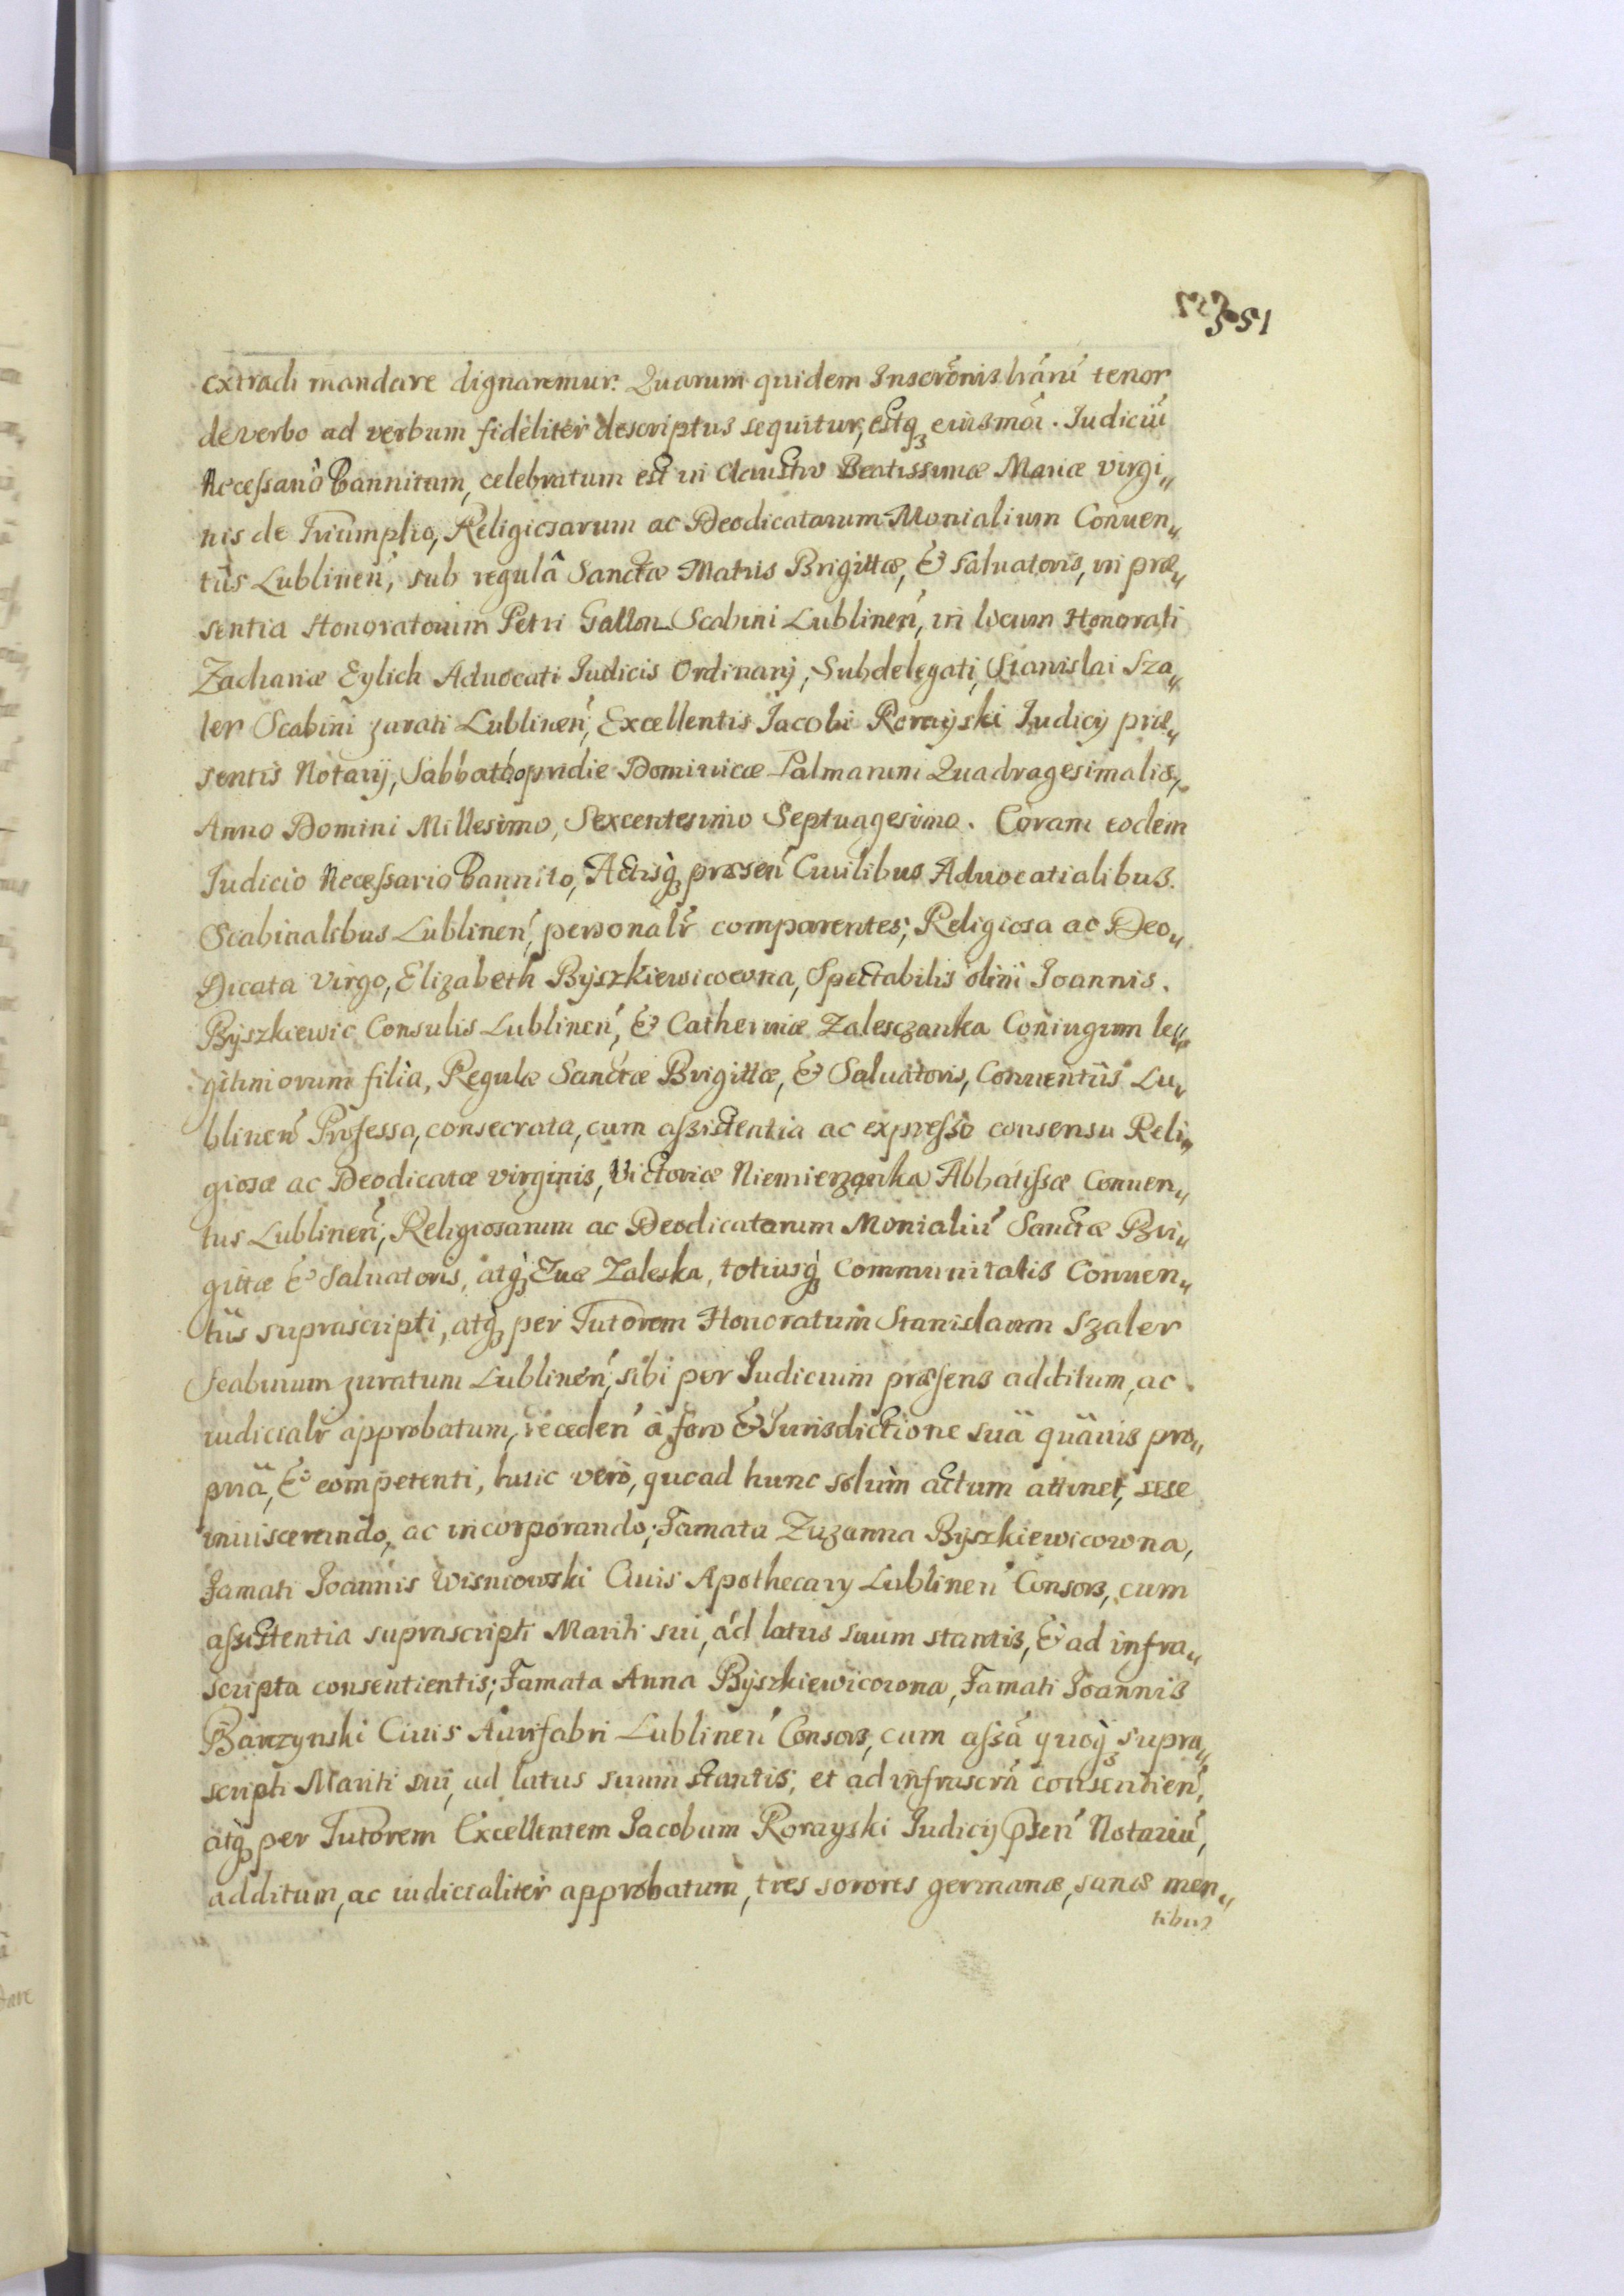 151
extradi mandare dignaremur. Quarum quidem Inscrōnis lrārū tenor
de verbo ad verbum fideliter descriptus sequitur, estq́ꝫ eiusmōi. Iudiciū
Necessariò bannitum, celebratum est in Claustro Beatissimæ Mariæ virgi„
nis de Triumpho, Religiosarum ac Deodicatarum Monialium Conuen„
tûs Lublineń, sub regulâ Sanctæ Matris Brigittæ, & Saluatoris, in præ„
sentia Honoratorum Petri Gallon Scabini Lublineń, in locum Honorati
Zachariæ Eylich Aduocati Iudicis Ordinarij, Subdelegati, Stanislai Sza„
ler Scabini jurati Lublineń, Excellentis Jacobi Rorayski Judicij præ„
sentis Notarij, Sabbato pridie Dominicæ Palmarum Quadragesimalis,
Anno Domini Millesimo, Sexcentesimo Septuagesimo. Coram eodem
Iudicio Necessario bannito, Actisq́ꝫ præseń Ciuilibus Aduocatialibus.
Scabinalibus Lublineń, personalr̃ comparentes; Religiosa ac Deo„
Dicata virgo, Elizabeth Byszkiewicowna, Spectabilis olim Joannis.
Byszkiewic Consulis Lublineń, & Catherinæ Zalesczanka Coniugum le„
gitimorum filia, Regulæ Sanctæ Brigittæ, & Saluatoris, Conuentûs Lu„
blineń Professa, consecrata, cum assistentia ac expresso consensu Reli„
giosæ ac Deodicatæ virginis, Victoriæ Niemierzanka Abbatissæ Conuen„
tus Lublineń, Religiosarum ac Deodicatarum Monialiū Sanctæ Bri„
gittæ & Saluatoris, atq́ꝫ Euæ Zaleska, totiusq́ꝫ Communitatis Conuen„
tûs suprascripti, atqꝫ per Tutorem Honoratum Stanislaum Szaler
Scabinum juratum Lublineń, sibi per Judicium præsens additum, ac
iudicialr̃ approbatum, recedeń â foro & Iurisdictione suâ quâuis pro„
priâ, & competenti, huic verò, quoad hunc solùm actum attinet, sese
inuiscerando, ac incorporando; Famata Zuzanna Byszkiewicowna,
Famati Joannis Wisniowski Ciuis Apothecary Lublineń Consors, cum
assistentia suprascripti Mariti sui, ad latus suum stantis, & ad infra„
scripta consentientis; Famata Anna Byszkiewicowna, Famati Joannis
Barzynski Ciuis Aurifabri Lublineń Consors, cum assā quoq́ꝫ supra„
scripti Mariti sui, ad latus suum stantis, et ad infrascrā consentień,
atq́ꝫ per Tutorem Excellentem Jacobum Rorayski Judicij Pseń Notariū,
additum, ac iudicialiter approbatum, tres sorores germanæ, sanis men„
tibus